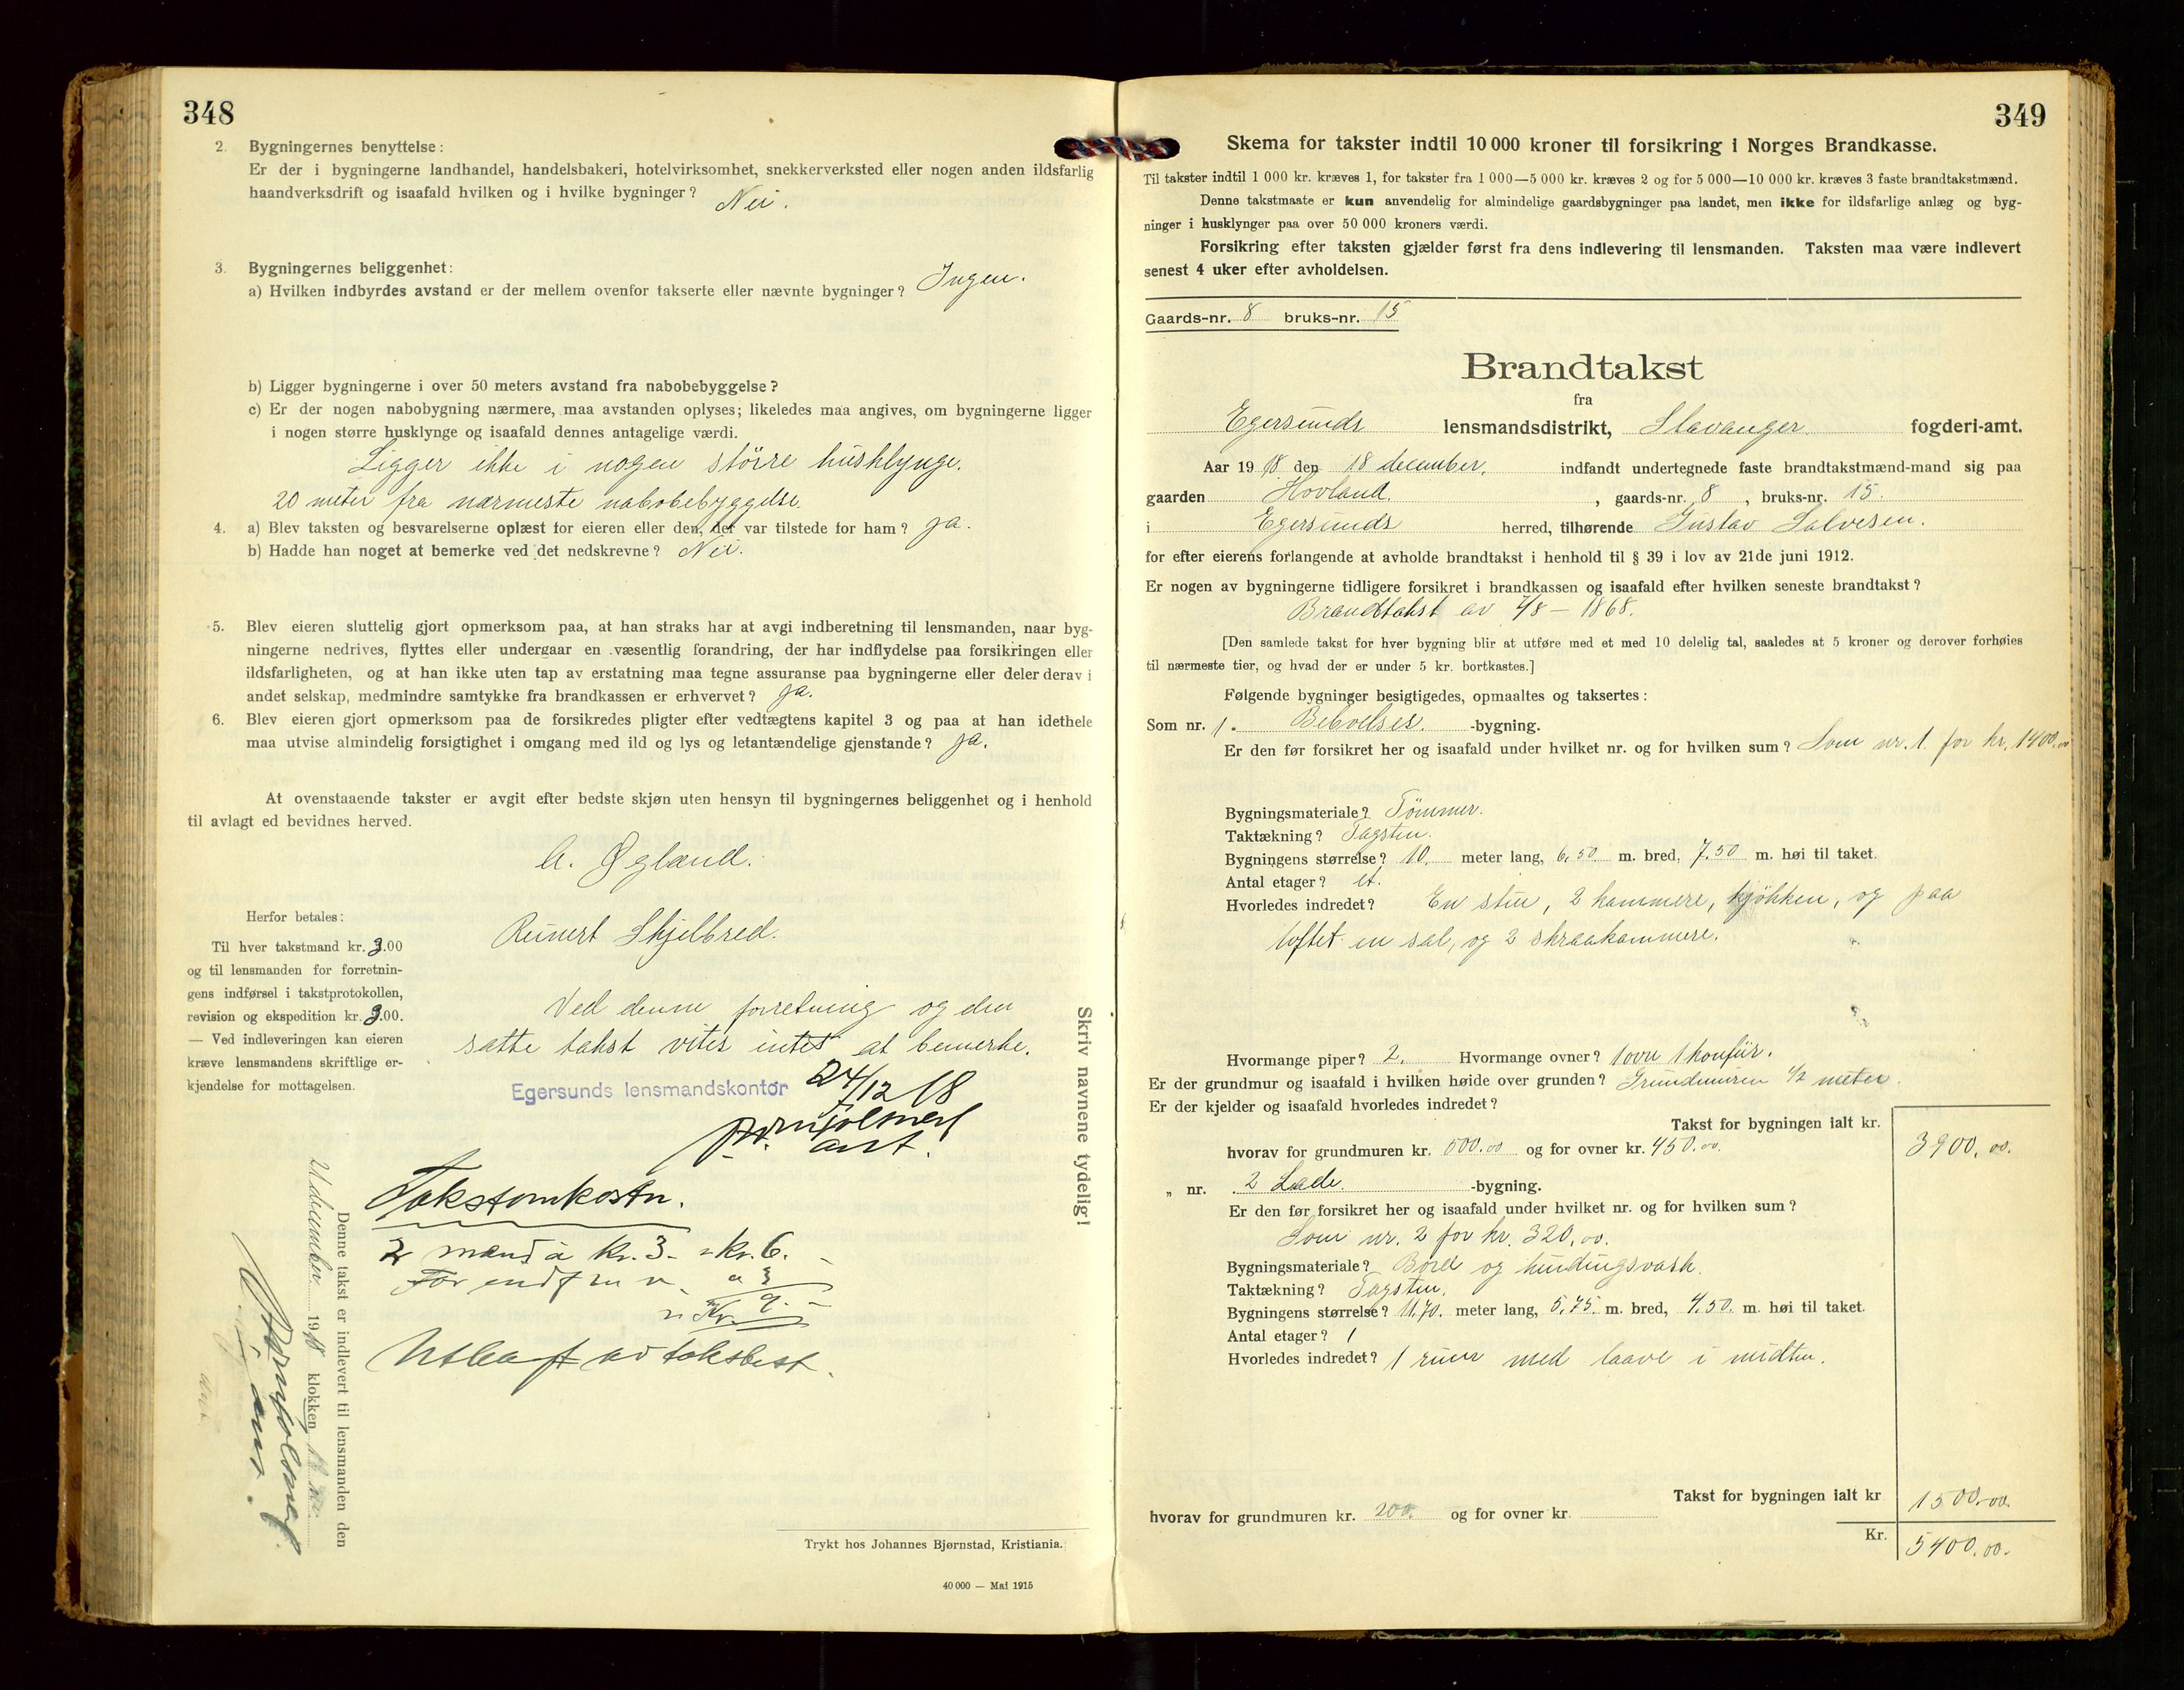 348
2. Bygningernes benyttelse:
Er der i bygningerne landhandel, handelsbakeri, hotelvirksomhet, snekkerverksted eller nogen anden ildsfarlig
haandverksdrift og isaafald hvilken og i hvilke bygninger? Nei.
3. Bygningernes beliggenhet:
a) Hvilken indbyrdes avstand er der mellem ovenfor takserte eller nævnte bygninger? Ingen.
b) Ligger bygningerne i over 50 meters avstand fra nabobebyggelse?
c) Er der nogen nabobygning nærmere, maa avstanden oplyses; likeledes maa angives, om bygningerne ligger
i nogen større husklynge og isaafald dennes antagelige værdi.
Ligger ikke i nogen större husklynge.
20 meter fra nærmeste nabobebyggelse.
4. a) Blev taksten og besvarelserne oplæst for eieren eller den, der var tilstede for ham? ja.
b) Hadde han noget at bemerke ved det nedskrevne? Nei.
5. Blev eieren sluttelig gjort opmerksom paa, at han straks har at avgi indberetning til lensmanden, naar byg-
ningerne nedrives, flyttes eller undergaar en væsentlig forandring, der har indflydelse paa forsikringen eller
ildsfarligheten, og at han ikke uten tap av erstatning maa tegne assuranse paa bygningerne eller deler derav i
andet selskap, medmindre samtykke fra brandkassen er erhvervet? ja.
6. Blev eieren gjort opmerksom paa de forsikredes pligter efter vedtægtens kapitel 3 og paa at han idethele
maa utvise almindelig forsigtighet i omgang med ild og lys og letantændelige gjenstande? ja.
At ovenstaaende takster er avgit efter bedste skjøn uten hensyn til bygningernes beliggenhet og i henhold
til avlagt ed bevidnes herved.
A. Øgland.
Reinert Skjelbred.
Herfor betales:
Til hver takstmand kr. 3.00
og til lensmanden for forretnin-
gens indførsel i takstprotokollen,
revision og ekspedition kr. 3.00.
— Ved indleveringen kan eieren
kræve lensmandens skriftlige er-
kjendelse for mottagelsen.
Ved denne forretning og den
satte takst vites intet at bemerke.
Egersunds lensmandskontor 24/12 18
ast.
Skriv navnene tydelig!
Takstomkostn.
2 mænd à kr. 3 - kr. 6. -
For
9. -
Kr.
av
Denne takst er indlevert til lensmanden den
1918 klokken
Trykt hos Johannes Bjørnstad, Kristiania.
40 000 — Mai 1915
349
Skema for takster indtil 10 000 kroner til forsikring i Norges Brandkasse.
Til takster indtil 1 000 kr. kræves 1, for takster fra 1 000—5 000 kr. kræves 2 og for 5 000—10 000 kr. kræves 3 faste brandtakstmænd.
Denne takstmaate er kun anvendelig for almindelige gaardsbygninger paa landet, men ikke for ildsfarlige anlæg og byg-
ninger i husklynger paa over 50 000 kroners værdi.
Forsikring efter taksten gjælder først fra dens indlevering til lensmanden. Taksten maa være indlevert
senest 4 uker efter avholdelsen.
Gaards-nr. 8 bruks-nr. 15
Brandtakst
fra
Egersunds lensmandsdistrikt, Stavanger fogderi-amt.
Aar 1918 den 18 december. indfandt undertegnede faste brandtakstmænd-mand sig paa
gaarden Hovland, gaards-nr. 8, bruks-nr. 15.
i Egersunds herred, tilhørende Gustav Salvesen.
for efter eierens forlangende at avholde brandtakst i henhold til § 39 i lov av 21de juni 1912.
Er nogen av bygningerne tidligere forsikret i brandkassen og isaafald efter hvilken seneste brandtakst?
Brandtakst av 7/8 - 1868.
[Den samlede takst for hver bygning blir at utføre med et med 10 delelig tal, saaledes at 5 kroner og derover forhøies
til nærmeste tier, og hvad der er under 5 kr. bortkastes.]
Følgende bygninger besigtigedes, opmaaltes og taksertes:
Som nr. 1. Beboelses -bygning.
Er den før forsikret her og isaafald under hvilket nr. og for hvilken sum? Som nr. 1 for kr. 1400.00
Bygningsmateriale? Tömmer.
Taktækning? Tagsten.
Bygningens størrelse? 10. meter lang, 6,50 m. bred, 7.50 m. høi til taket.
Antal etager? et.
Hvorledes indredet? En stue, 2 kammere, kjökken, og paa
loftet en sal, og 2 skraakammere.
Hvormange piper? 2. Hvormange ovner? 1 ovn 1 komfür.
Er der grundmur og isaafald i hvilken høide over grunden? Grundmuren 1/2 meter.
Er der kjelder og isaafald hvorledes indredet?
Takst for bygningen ialt kr.
hvorav for grundmuren kr. 500.00 og for ovner kr. 450.00. 3900.00.
„ nr. 2 Lade. -bygning.
Er den før forsikret her og isaafald under hvilket nr. og for hvilken sum?
Som nr. 2 for kr. 320.00.
Bygningsmateriale? Bord og bindingsværk.
Taktækning? Tagsten.
Bygningens størrelse? 11,70. meter lang, 5,75. m. bred, 4.50. m. høi til taket.
Antal etager? 1
Hvorledes indredet? 1 rum med laave i midten.
Takst for bygningen ialt kr 1500.00.
hvorav for grundmuren kr. 200. og for ovner kr.
Kr. 5400.00.